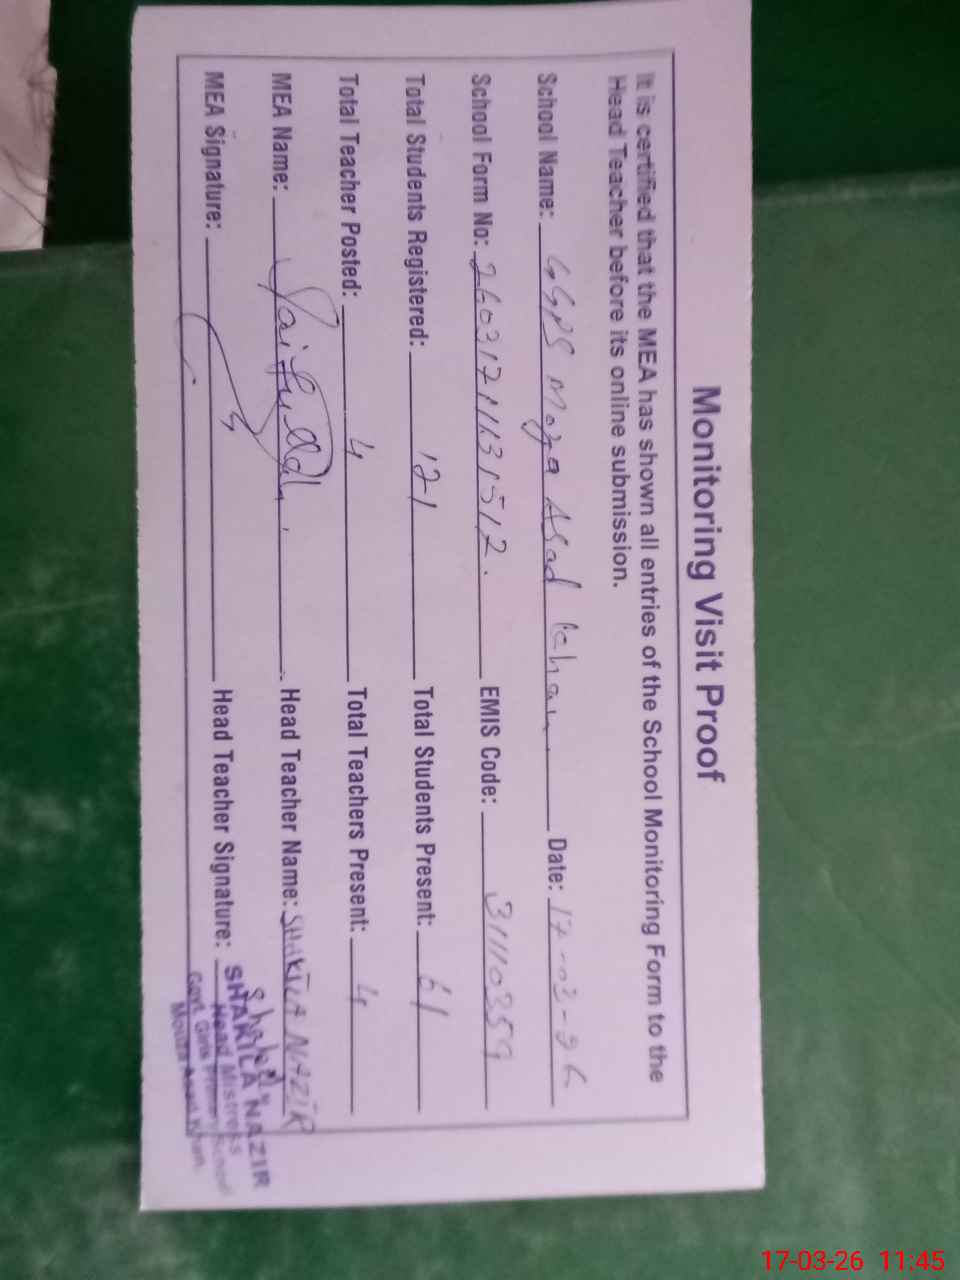 Monitoring Visit Proof
It is certified that the MEA has shown all entries of the School Monitoring Form to the
Head Teacher before its online submission.
School Name: GGPS Moza Asad Khan Date: 17-03-26
School Form No: EMIS Code: 31110359
Total Students Registered: 121 Total Students Present: 61
Total Teacher Posted: 4 Total Teachers Present: 4
MEA Name: Saifullah Head Teacher Name: SHAKILA NAZIR
MEA Signature: Head Teacher Signature: Shakila
SHAKILA NAZIR
Head Mistress
Govt. Girls Primary School
Mouza Asad Khan
17-03-26 11:45